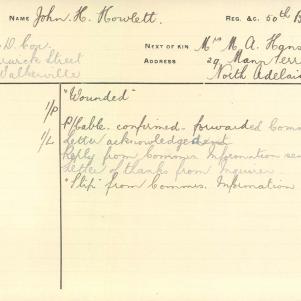 NAME John H. Howlett. REG. &C. 50th B
D. Coy. NEXT OF KIN Mrs M. A. Hans
Street ADDRESS 29 Mann Terr
Walkerville North Adelai
1/P "Wounded"
P/Cable. confirmed. forwarded Comm
1/L Letter acknowledged
Reply from Commrs Information sen
Letter of thanks from Inquirer.
"Slip" from Commrs. Information